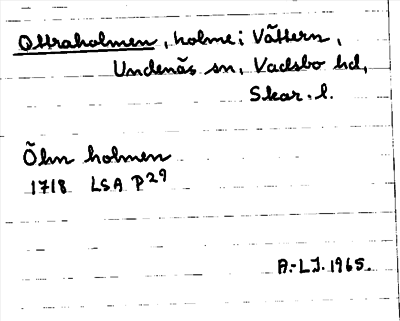 Ottraholmen, holme i Vättern,
Undenäs sn, Vadsbo hd,
Skar. l.
Ölm holmen
1718 LSA P29
A.-L.J. 1965.